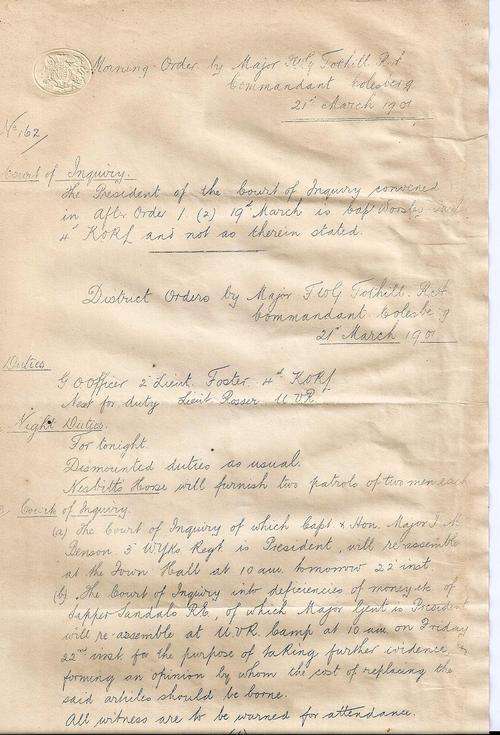 Morning Order by Major F W G Tothill R.A
Commandant Colesberg
21st March 1901
No 162
Court of Inquiry.
The President of the Court of Inquiry convened
in After Order 1 (2) 19th March is Capt Worsley
4th KORL and not as therein stated.
District Orders by Major F W G Tothill. R.A
Commandant Colesberg
21st March 1901
Duties
G O Officer 2nd Lieut. Foster. 4th KORL
Next for duty Lieut Rosser. U.V.R.
Night Duties.
For tonight
Dismounted duties as usual.
Nesbitts Horse will furnish two patrols of two men each
Court of Inquiry.
(a) The Court of Inquiry of which Capt & Hon. Major
Denson. 3rd W Yks. Regt is President, will re-assemble
at the Town Hall at 10 am. tomorrow 22 inst.
(b) The Court of Inquiry into deficiencies of money etc of
Sapper Sandals R.E, of which Major Gent is President
will re-assemble at U.V.R. Camp at 10 am. on Friday
22nd inst. for the purpose of taking further evidence,
forming an opinion by whom the cost of replacing the
said articles should be borne.
All witness are to be warned for attendance.
(1)